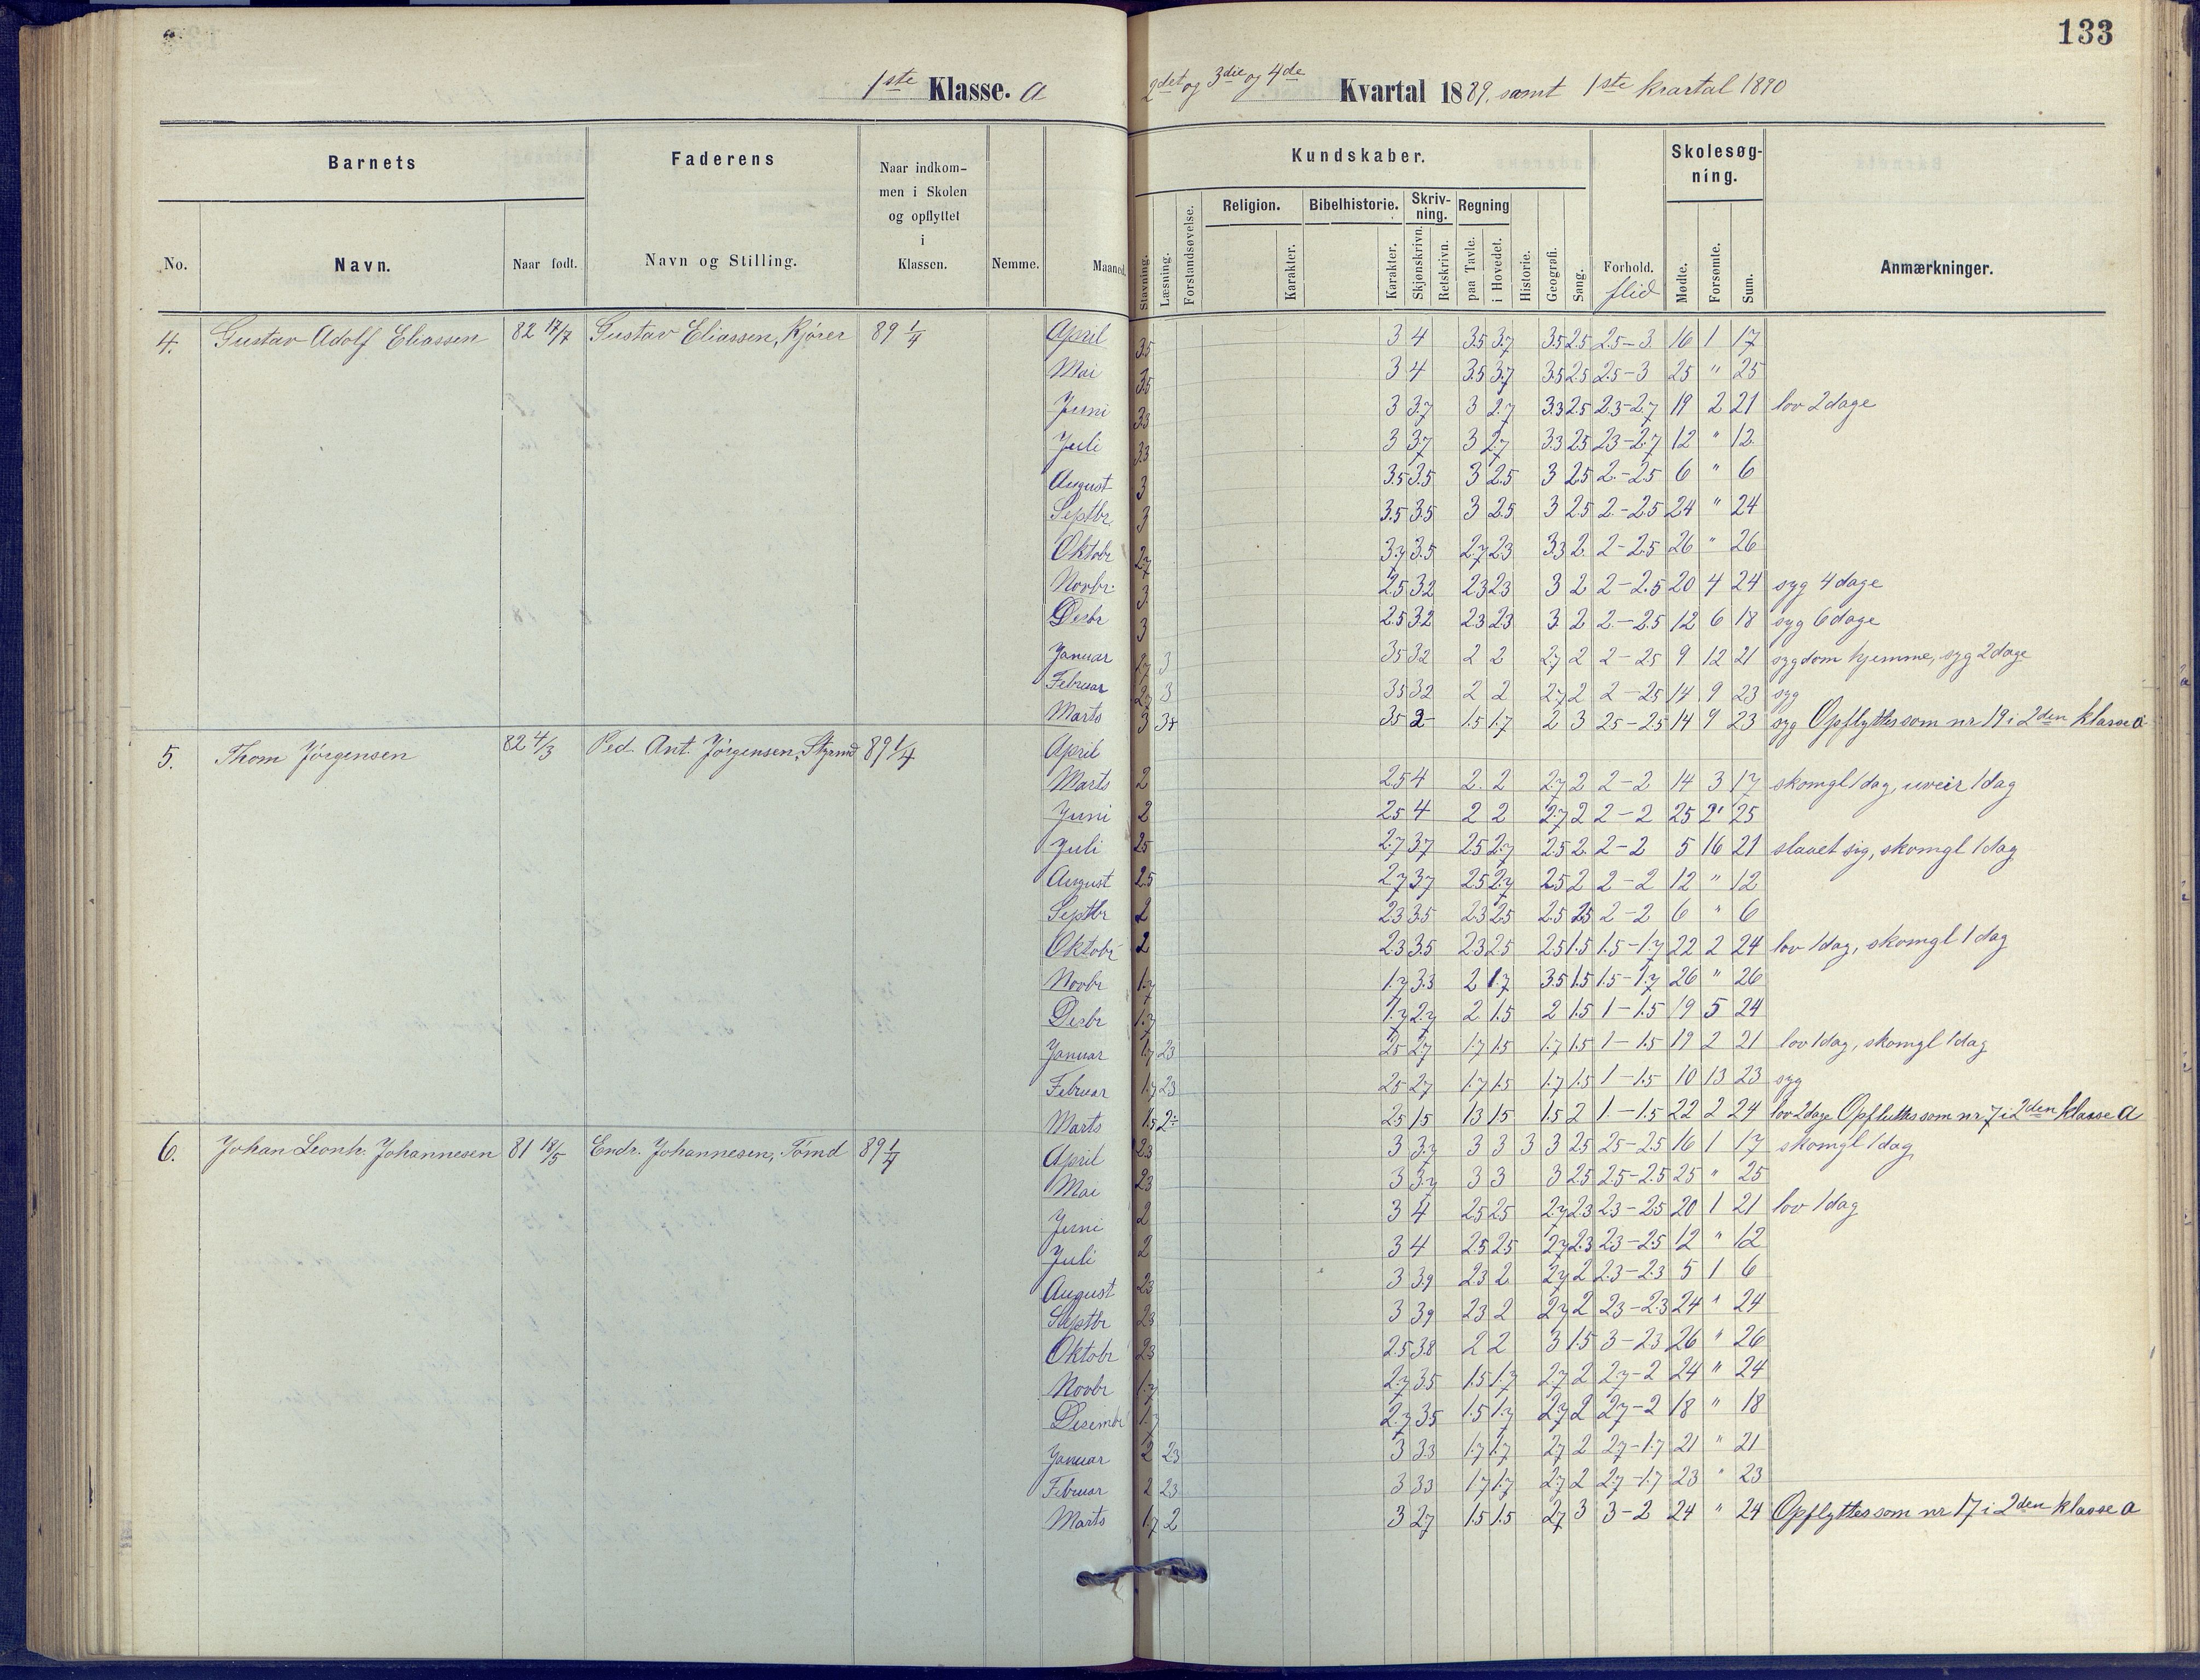 133
1ste Klasse. a
2det og 3die og 4de Kvartal 1889, samt 1ste kvartal 1890
Barnets Faderens Naar indkommen i Skolen og opflyttet i Klassen. Kundskaber. Skolesøgning.
Religion. Bibelhistorie. Skrivning. Regning
No. Navn. Naar født. Navn og Stilling. Nemme. Maaned. Stavning. Læsning. Forstandsøvelse. Karakter. Karakter. Skjønskrivn. Retskrivn. paa Tavle. i Hovedet. Historie. Geografi. Sang. Forhold. flid Mødte. Forsømte. Sum. Anmærkninger.
4. Gustav Adolf Eliassen 82 17/7 Gustav Eliassen, Kjører 89 1/4 April 3.5 3 4 3.5 3.7 3.5 2.5 2.5-3. 16 1 17
Mai 3.5 3 4 3.5 3.7 3.5 2.5 2.5-3 25 " 25
Juni 3.3 3 3.7 3 2.7 3.3 2.5 2.3-2.7 19 2 21 lov 2 dage
Juli 3.3 3 3.7 3 2.7 3.3 2.5 2.3-2.7 12 " 12
August 3 3.5 3.5 3 2.5 3 2.5 2-2.5 6 " 6
Septbr. 3 3.5 3.5 3 2.5 3 2.5 2-2.5 24 " 24
Oktobr 2.7 3.7 3.5 2.7 2.3 3.3 2 2-2.5 26 " 26
Novbr. 3 2.5 3.2 2.3 2.3 3 2 2-2.5 20 4 24 syg 4 dage
Desbr 3 2.5 3.2 2.3 2.3 3 2 2-2.5 12 6 18 syg 6 dage
Januar 2.7 3 3.5 3.2 2 2 2.7 2 2-2.5 9 12 21 sygdom hjemme, syg 2 dage
Februar 2.7 3 3.5 3.2 2 2 2.7 2 2-2.5 14 9 23 syg
Marts 3 3.5 2- 1.5 1.7 2 3 2.5-2.5 14 9 23 syg Opflyttes som nr 19 i 2den klasse a
5. Thom Jörgensen 82 4/3 Ped. Ant. Jörgensen, Styrmd 89 1/4 April
Marts 2 2.5 4 2. 2 2.7 2 2-2 14 3 17 skomgl 1 dag, uveir 1 dag
Juni 2 2.5 4 2 2 2.7 2 2-2 25 25
Juli 2.5 2.7 3.7 2.5 2.7 2.5 2 2-2 5 16 21 slaaet sig, skomgl 1 dag
August 2.5 2.7 3.7 2.5 2.7 2.5 2 2-2 12 " 12
Septbr 2 2.3 3.5 2.3 2.5 2.5 2.5 2-2 6 " 6
Oktobr 2 2.3 3.5 2.3 2.5 2.5 1.5 1.5-1.7 22 2 24 lov 1 dag, skomgl 1 dag
Novbr 1.7 1.7 3.3 2 1.7 3.5 1.5 1.5-1.7 26 " 26
Desbr 1.7 1.7 2.7 2 1.5 2 1.5 1-1.5 19 5 24
Januar 1.7 2.3 2.5 2.7 1.7 1.5 1.7 1.5 1-1.5 19 2 21 lov 1 dag, skomgl 1 dag
Februar 1.7 2.3 2.5 2.7 1.7 1.5 1.7 1.5 1-1.5 10 13 23 syg
Marts 1.5 2÷ 2.5 1.5 1.3 1.5 1.5 2 1-1.5 22 2 24 lov 2 dage Opflyttes som nr 7 i 2den klasse a
6. Johan Leonh. Johannesen 81 18/5 Endr. Johannesen, Tømd 89 1/4 April 2.3 3 3.7 3 3 3 3 2.5 2.5-2.5 16 1 17 skomgl 1 dag
Mai 2.3 3 3.7 3 3 3 2.5 2.5-2.5 25 " 25
Juni 2 3 4 2.5 2.5 2.7 2.3 2.3-2.5 20 1 21 lov 1 dag
Juli 2 3 4 2.5 2.5 2.7 2.3 2.3-2.5 12 " 12
August 2.3 3 3.9 2.3 2 2.7 2 2.3-2.3 5 1 6
Septbr 2.3 3 3.9 2.3 2 2.7 2 2.3-2.3 24 " 24
Oktobr 2.3 2.5 3.8 2 2 3 1.5 3-2.3 26 " 26
Novbr 1.7 2.7 3.5 1.5 1.7 2.7 2 2.7-2 24 " 24
Desembr 1.7 2.7 3.5 1.5 1.7 2.7 2 2.7-2 18 " 18
Januar 2 2.3 3 3.3 1.7 1.7 2.7 2 2.7-1.7 21 " 21
Februar 2 2.3 3 3.3 1.7 1.7 2.7 2 2.7-1.7 23 " 23
Marts 1.7 2 3 2.7 1.5 1.5 2.7 3 3-2 24 " 24 Opflyttes som nr 17 i 2den klasse a